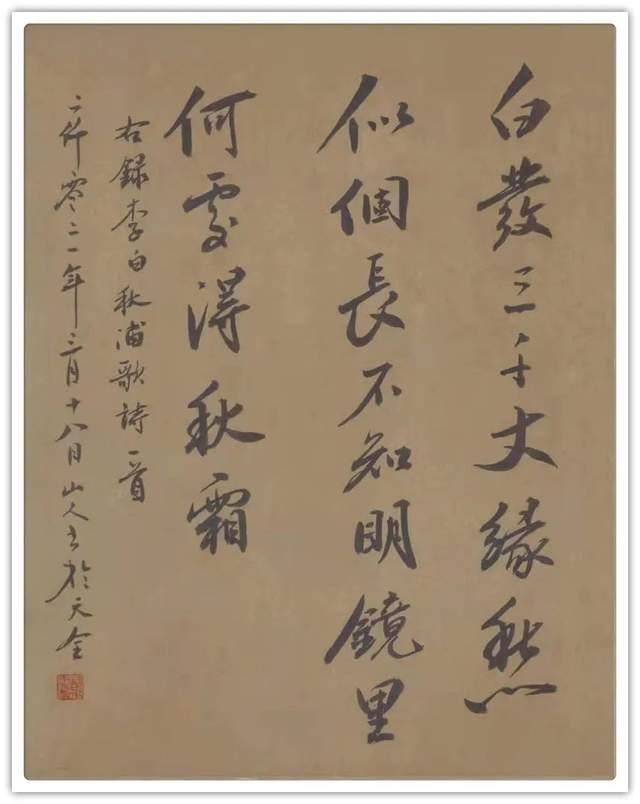 白發三千丈緣愁
似個長不知明鏡里
何處得秋霜
右録李白秋浦歌詩一首
二仟零二一年三月十八日山人书於天全